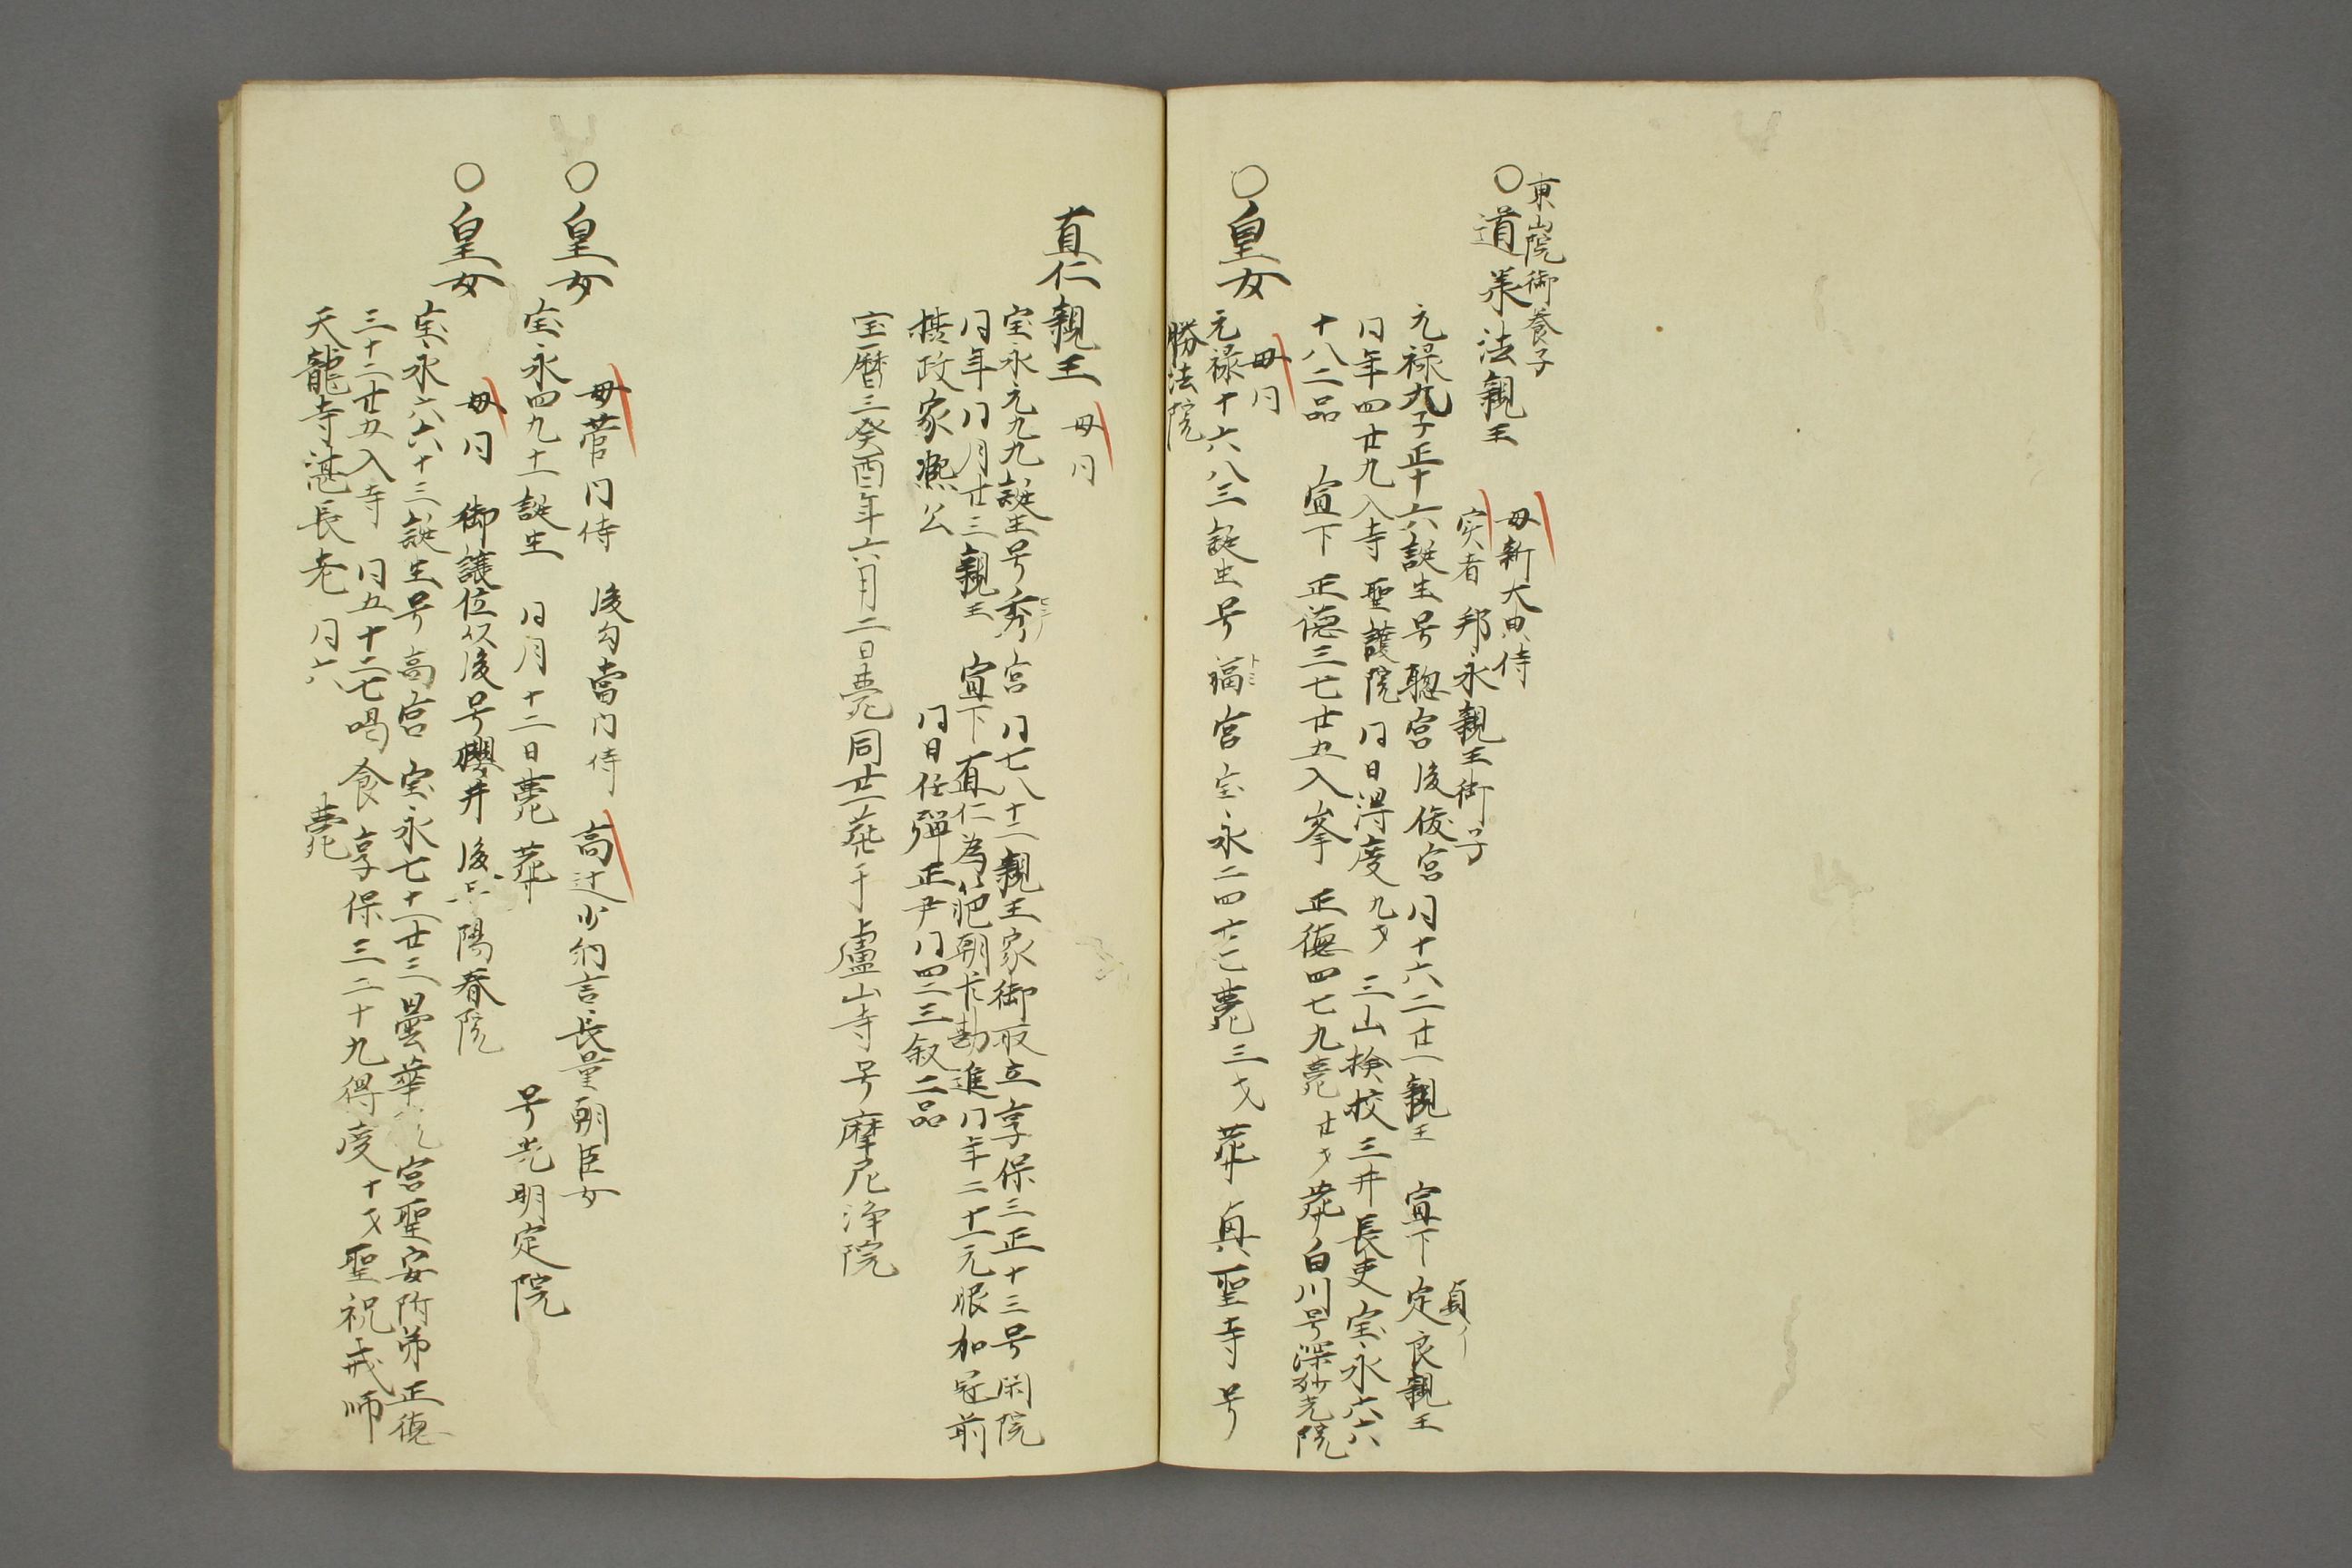 東山院御養子
○道承法親王
母新大典侍
実者 邦永親王御子
元禄九子正十六誕生号聡宮後俊宮 同十六二廿一親王 宣下 定良親王
貞イ
同年四廿九入寺聖護院 同日得度九才 三山検校三井長吏宝永六六
十八二品 宣下 正徳三七廿五入峯 正徳四七九薨廿才葬白川号深砂光院
○皇女
母同
元禄十六八三誕生号福宮宝永二四十二薨三才葬真聖寺号
トミ
勝法院
直仁親王 母同
宝永元九九誕生号秀宮 同七八十二親王家御取立享保三正十三号閑院
ヒテノ
同年同月廿三親王 宣下直仁為範朝臣勘進同年二十一元服加冠前
摂政家熈公 同日任弾正尹同四二三叙二品
宝暦三癸酉年六月二日薨同廿一葬于盧山寺号摩尼浄院
○皇女
母菅内侍 後勾当内侍 高辻少納言長量朝臣女
宝永四九十一誕生 同月十二日薨 葬 号光明定院
○皇女
母同 御譲位以後号櫻井 後号陽春院
宝永六六十三誕生号高宮 宝永七十一廿三曇華院宮聖安附弟正徳
三十二廿五入寺 同五十二七喝食享保三二十九得度十才聖祝戒師
天龍寺湛長老 同六 薨